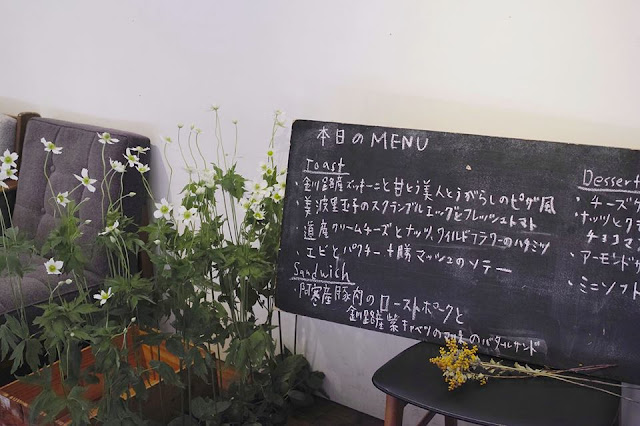 本日のMENU
Toast
・釧路産ズッキーニと甘とう美人とうがらしのピザ風
・美波里玉子のスクランブルエッグとフレッシュトマト
・道産クリームチーズとナッツ、ワイルドフラワーのハチミツ
・エビとパクチー 十勝マッシュのソテー
Sandwich
・阿寒産豚肉のローストポークと
釧路産紫キャベツのマリネのバタールサンド
Dessert
・チーズケ
・ナッツとク
チョコマ
・アーモンド
・ミニソフト